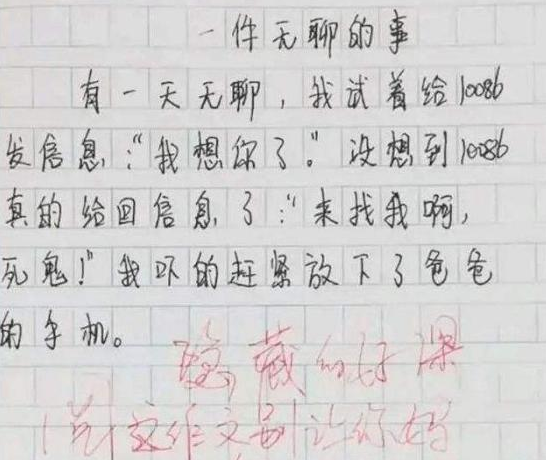 一件无聊的事
有一天无聊，我试着给10086
发信息："我想你了。"没想到10086
真的给回信息了："来找我啊，
死鬼！"我吓的赶紧放下了爸爸
的手机。
隐藏的好深
这作文别让你妈